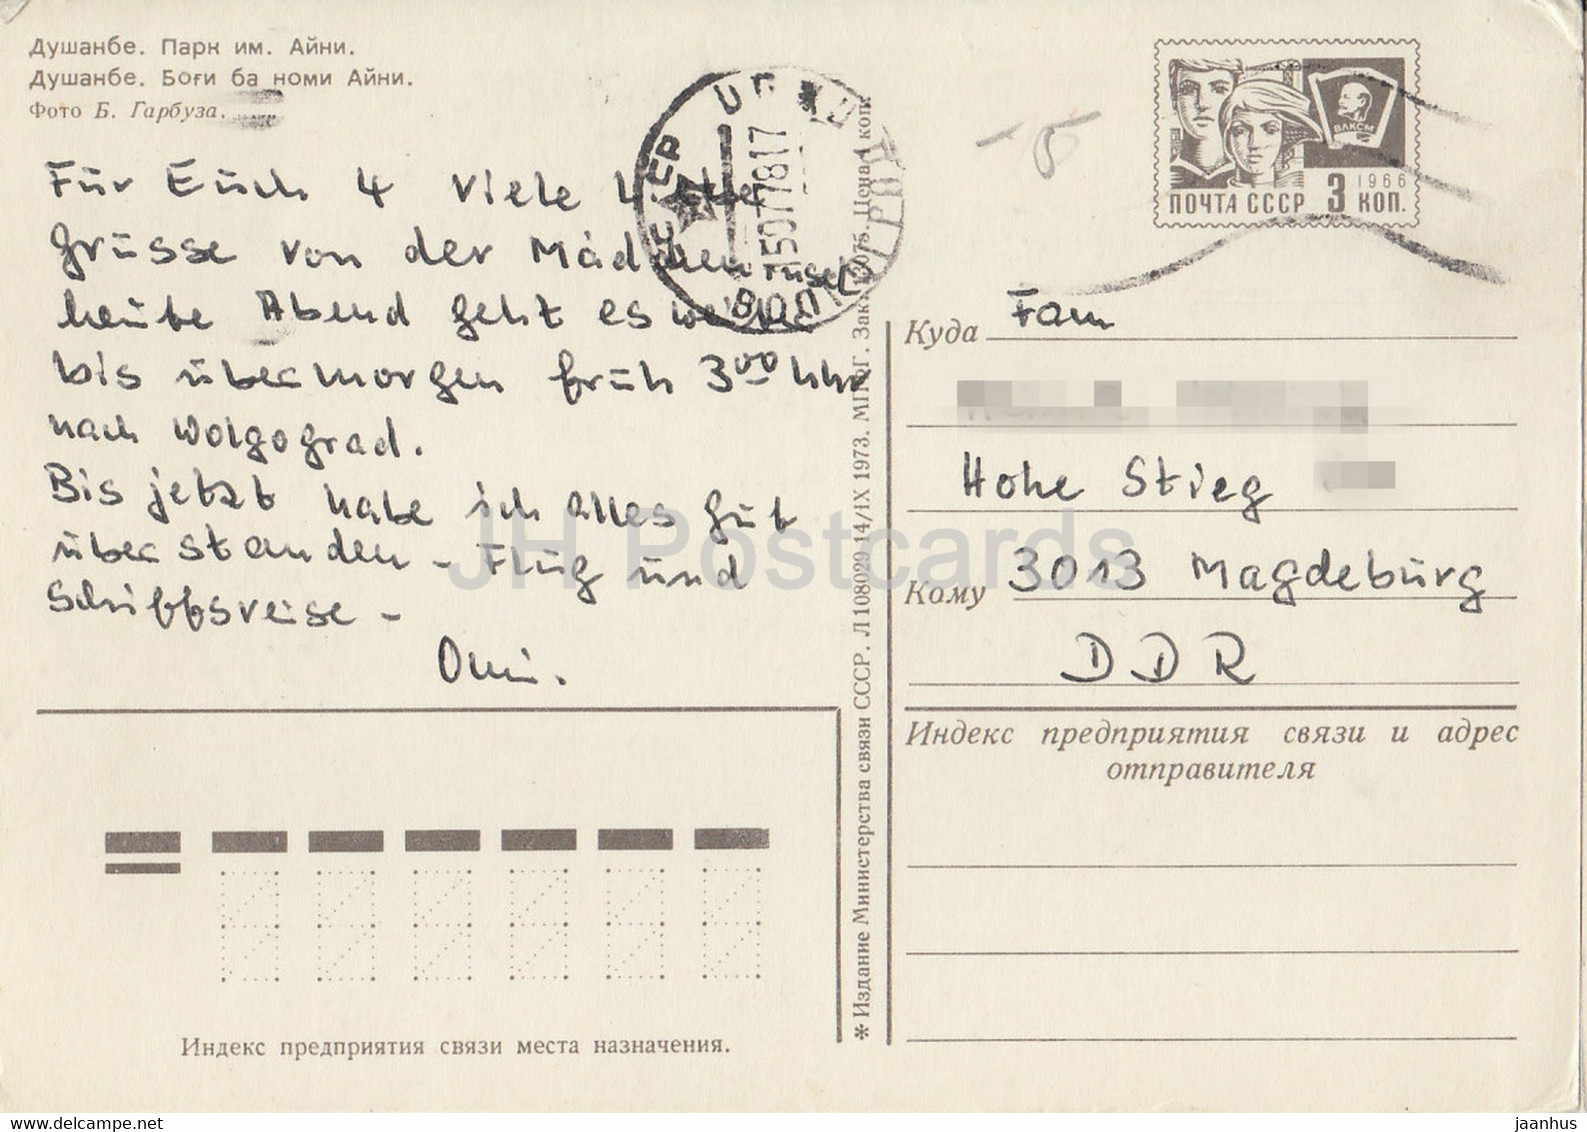 Душанбе. Парк им. Айни.
Душанбе. Боғи ба номи Айни.
Фото Б. Гарбуза.
Für Euch 4 viele liebe
Grüsse von der Mädcheninsel
heute Abend geht es weiter
bis übermorgen früh 3⁰⁰ Uhr
nach Wolgograd.
Bis jetzt habe ich alles gut
überstanden - Flug und
Schiffsreise -
Omi.
Индекс предприятия связи места назначения.
* Издание Министерства связи СССР. Л 108029 14/IX 1973. МПФГ. Зак. Цена 4 коп.
СССР
15077817
ВЛКСМ
1966
ПОЧТА СССР 3 КОП.
-5
Куда Fam
Hohe Stieg
Кому 3013 Magdeburg
DDR
Индекс предприятия связи и адрес
отправителя
JH Postcards
delcampe.net
jaanhus